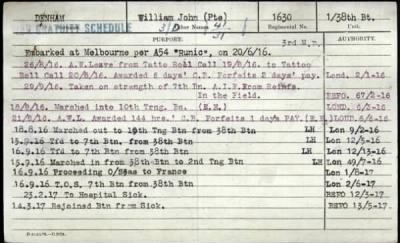 DENHAM William John (Pte) 1630 1/38th Bt.
GRATUITY SCHEDULE Other Names Regimental No. Unit.
PURPORT. 3rd M.D. AUTHORITY.
Embarked at Melbourne per A54 "Runic", on 20/6/16.
26/8/16. A.W.Leave from Tatto Roll Call 19/8/16. to Tattoo
Roll Call 20/8/16. Awarded 6 days' C.B. Forfeits 2 days' pay. Lond. 2/1-16
29/9/16. Taken on strength of 7th Bn. A.I.F. From Reinfs.
In the Field. REFO. 67/2-16
18/8/16. Marched into 10th Trng. Bn. (E.E.) LOND. 6/2-16
21/8/16. A.W.L. Awarded 144 hrs.' C.B. Forfeits 1 days PAY. (E.E.) LOND. 6/6-16
18.8.16 Marched out to 10th Tng Btn from 38th Btn LH Lon 9/2-16
15.9.16 Tfd to 7th Btn. from 38th Btn LH Lon 12/5-16
16.9.16 Tfd to 7th Btn from 38th Btn LH Lon 12/13-16
15.9.16 Marched in from 38th Btn to 2nd Tng Btn LH Lon 49/7-16
16.9.16 Proceeding O/Seas to France Lon 1/6-17
16.9.16 T.O.S. 7th Btn from 38th Btn Lon 2/8-17
23.2.17 To Hospital Sick. Refo 12/6-17
14.3.17 Rejoined Btn from Sick. Refo 17/8-17